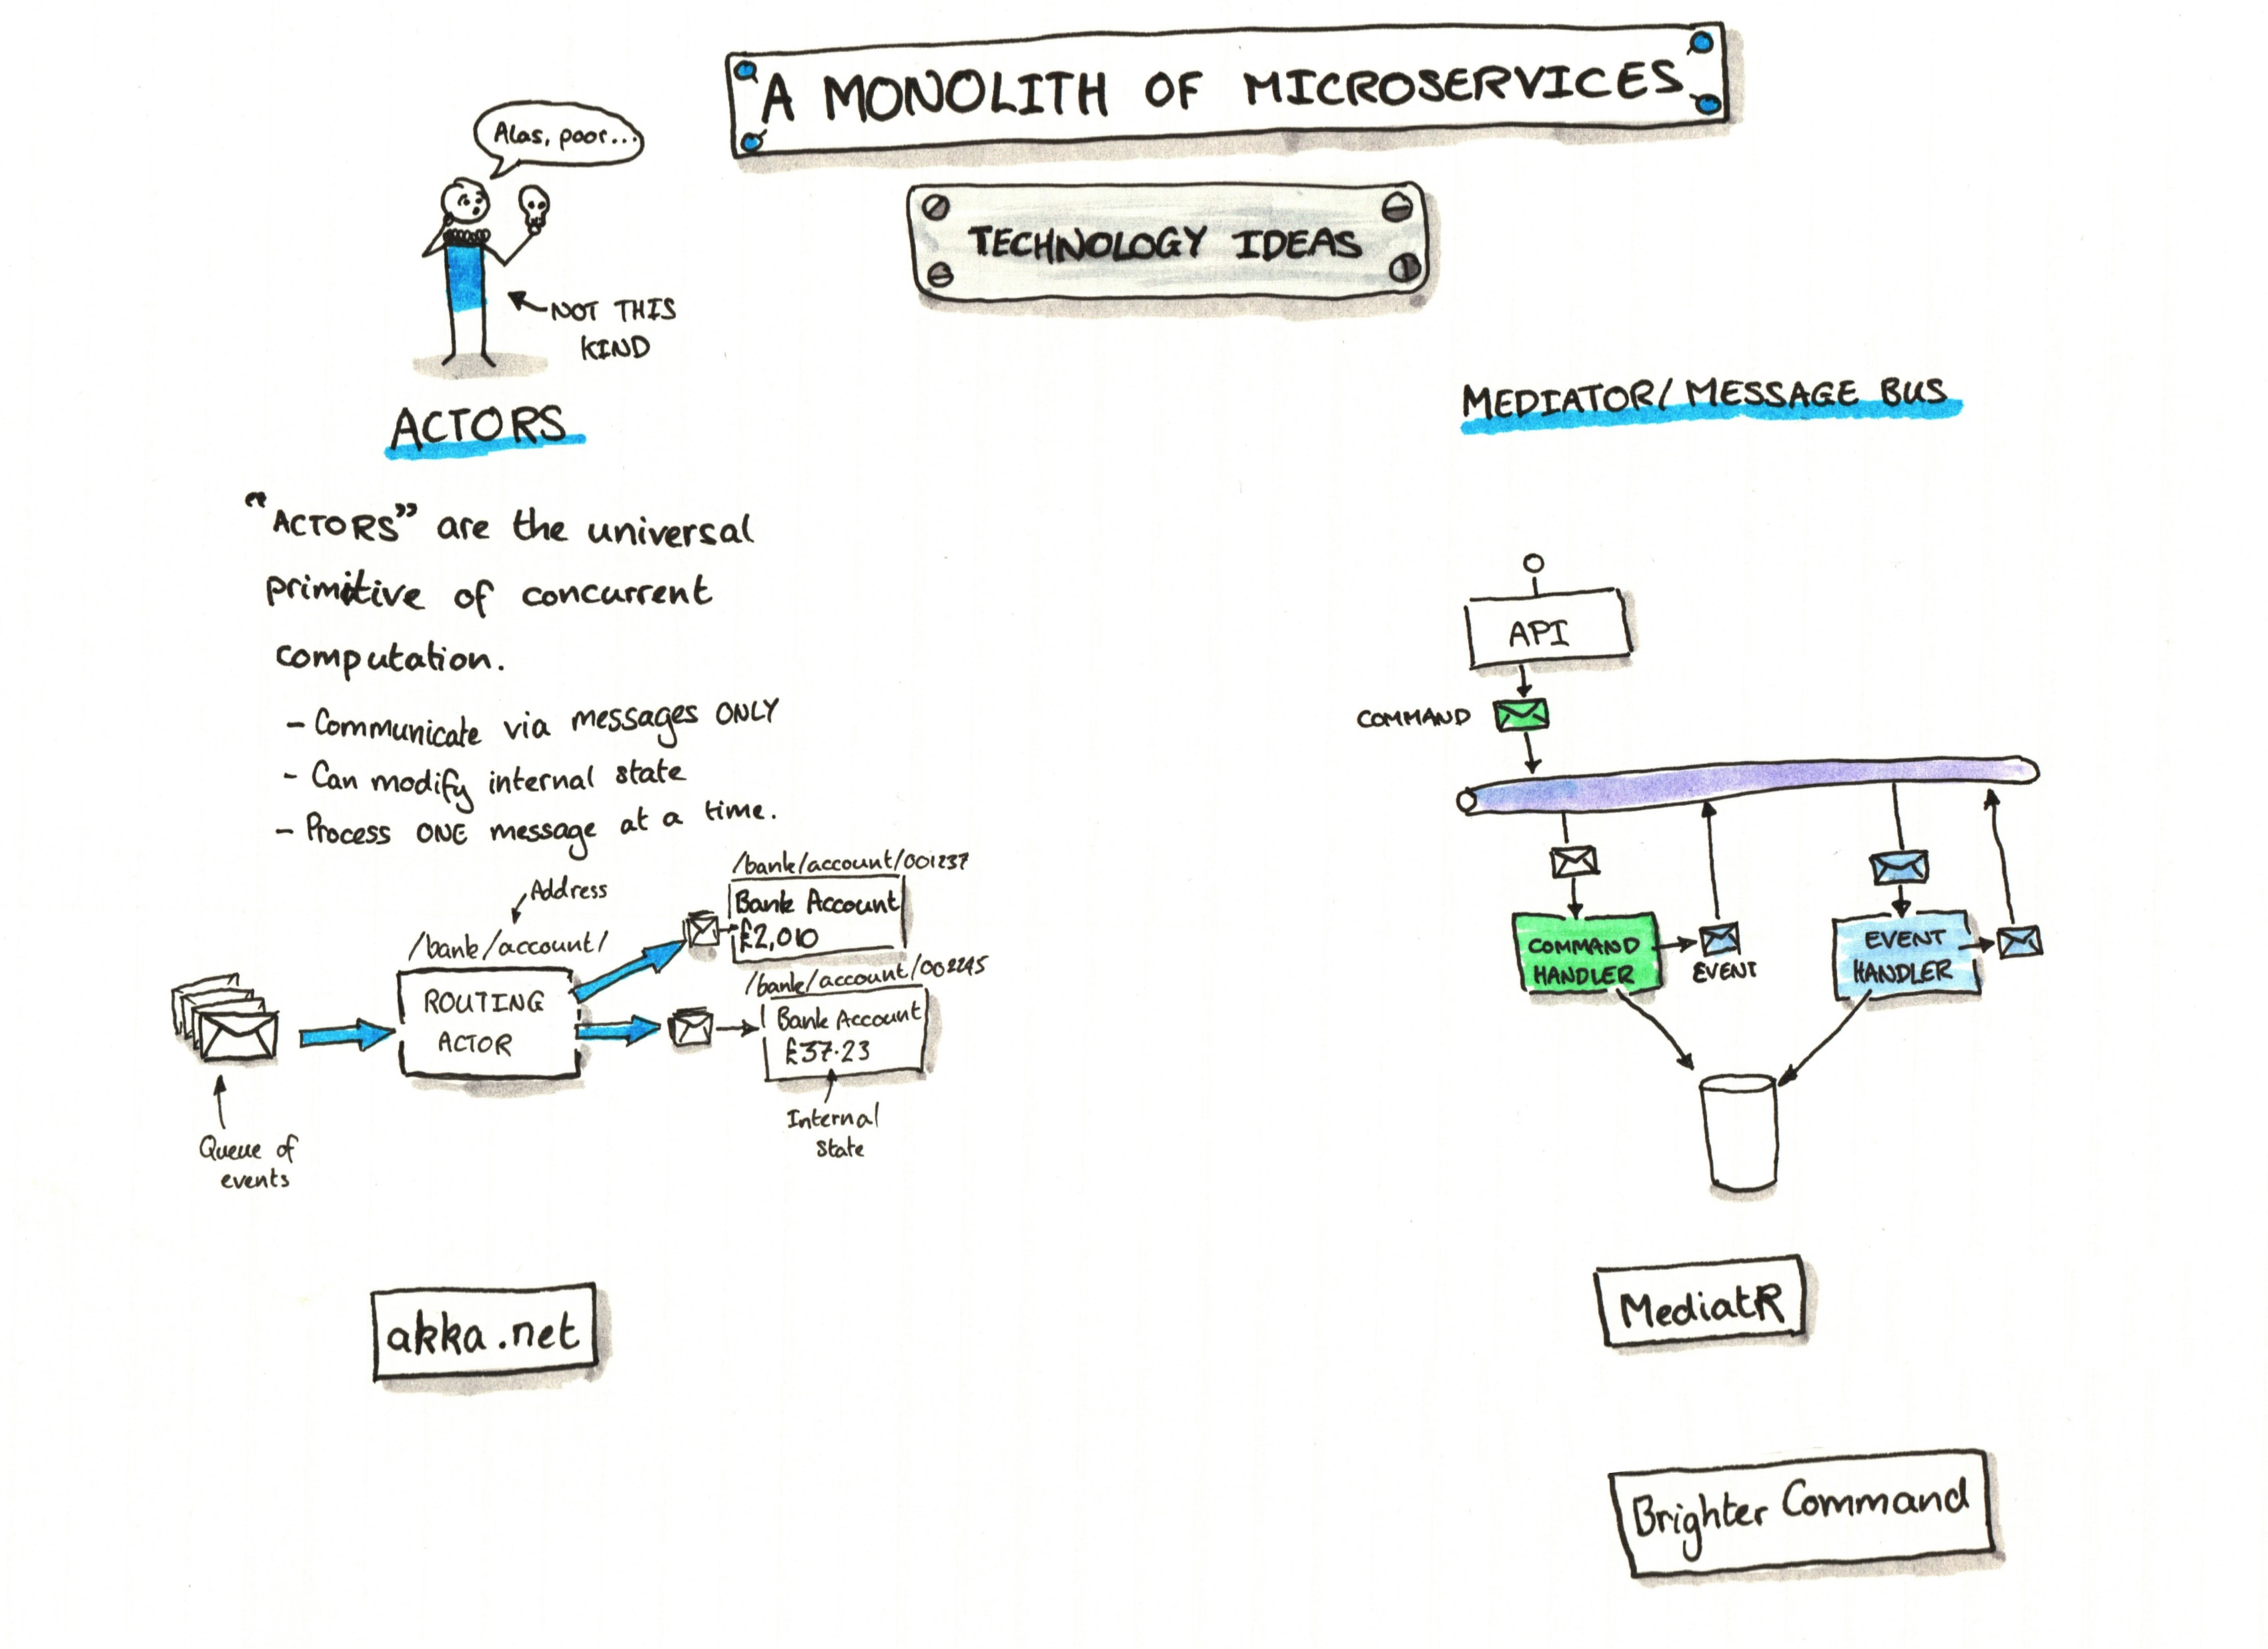 A MONOLITH OF MICROSERVICES
TECHNOLOGY IDEAS
Alas, poor...
NOT THIS
KIND
ACTORS
"ACTORS" are the universal
primitive of concurrent
computation.
- Communicate via messages ONLY
- Can modify internal state
- Process ONE message at a time.
Address
/bank/account/
ROUTING
ACTOR
Queue of
events
/bank/account/001237
Bank Account
£2,010
/bank/account/002245
Bank Account
£37.23
Internal
state
akka.net
MEDIATOR/MESSAGE BUS
API
COMMAND
COMMAND
HANDLER
EVENT
EVENT
HANDLER
MediatR
Brighter Command